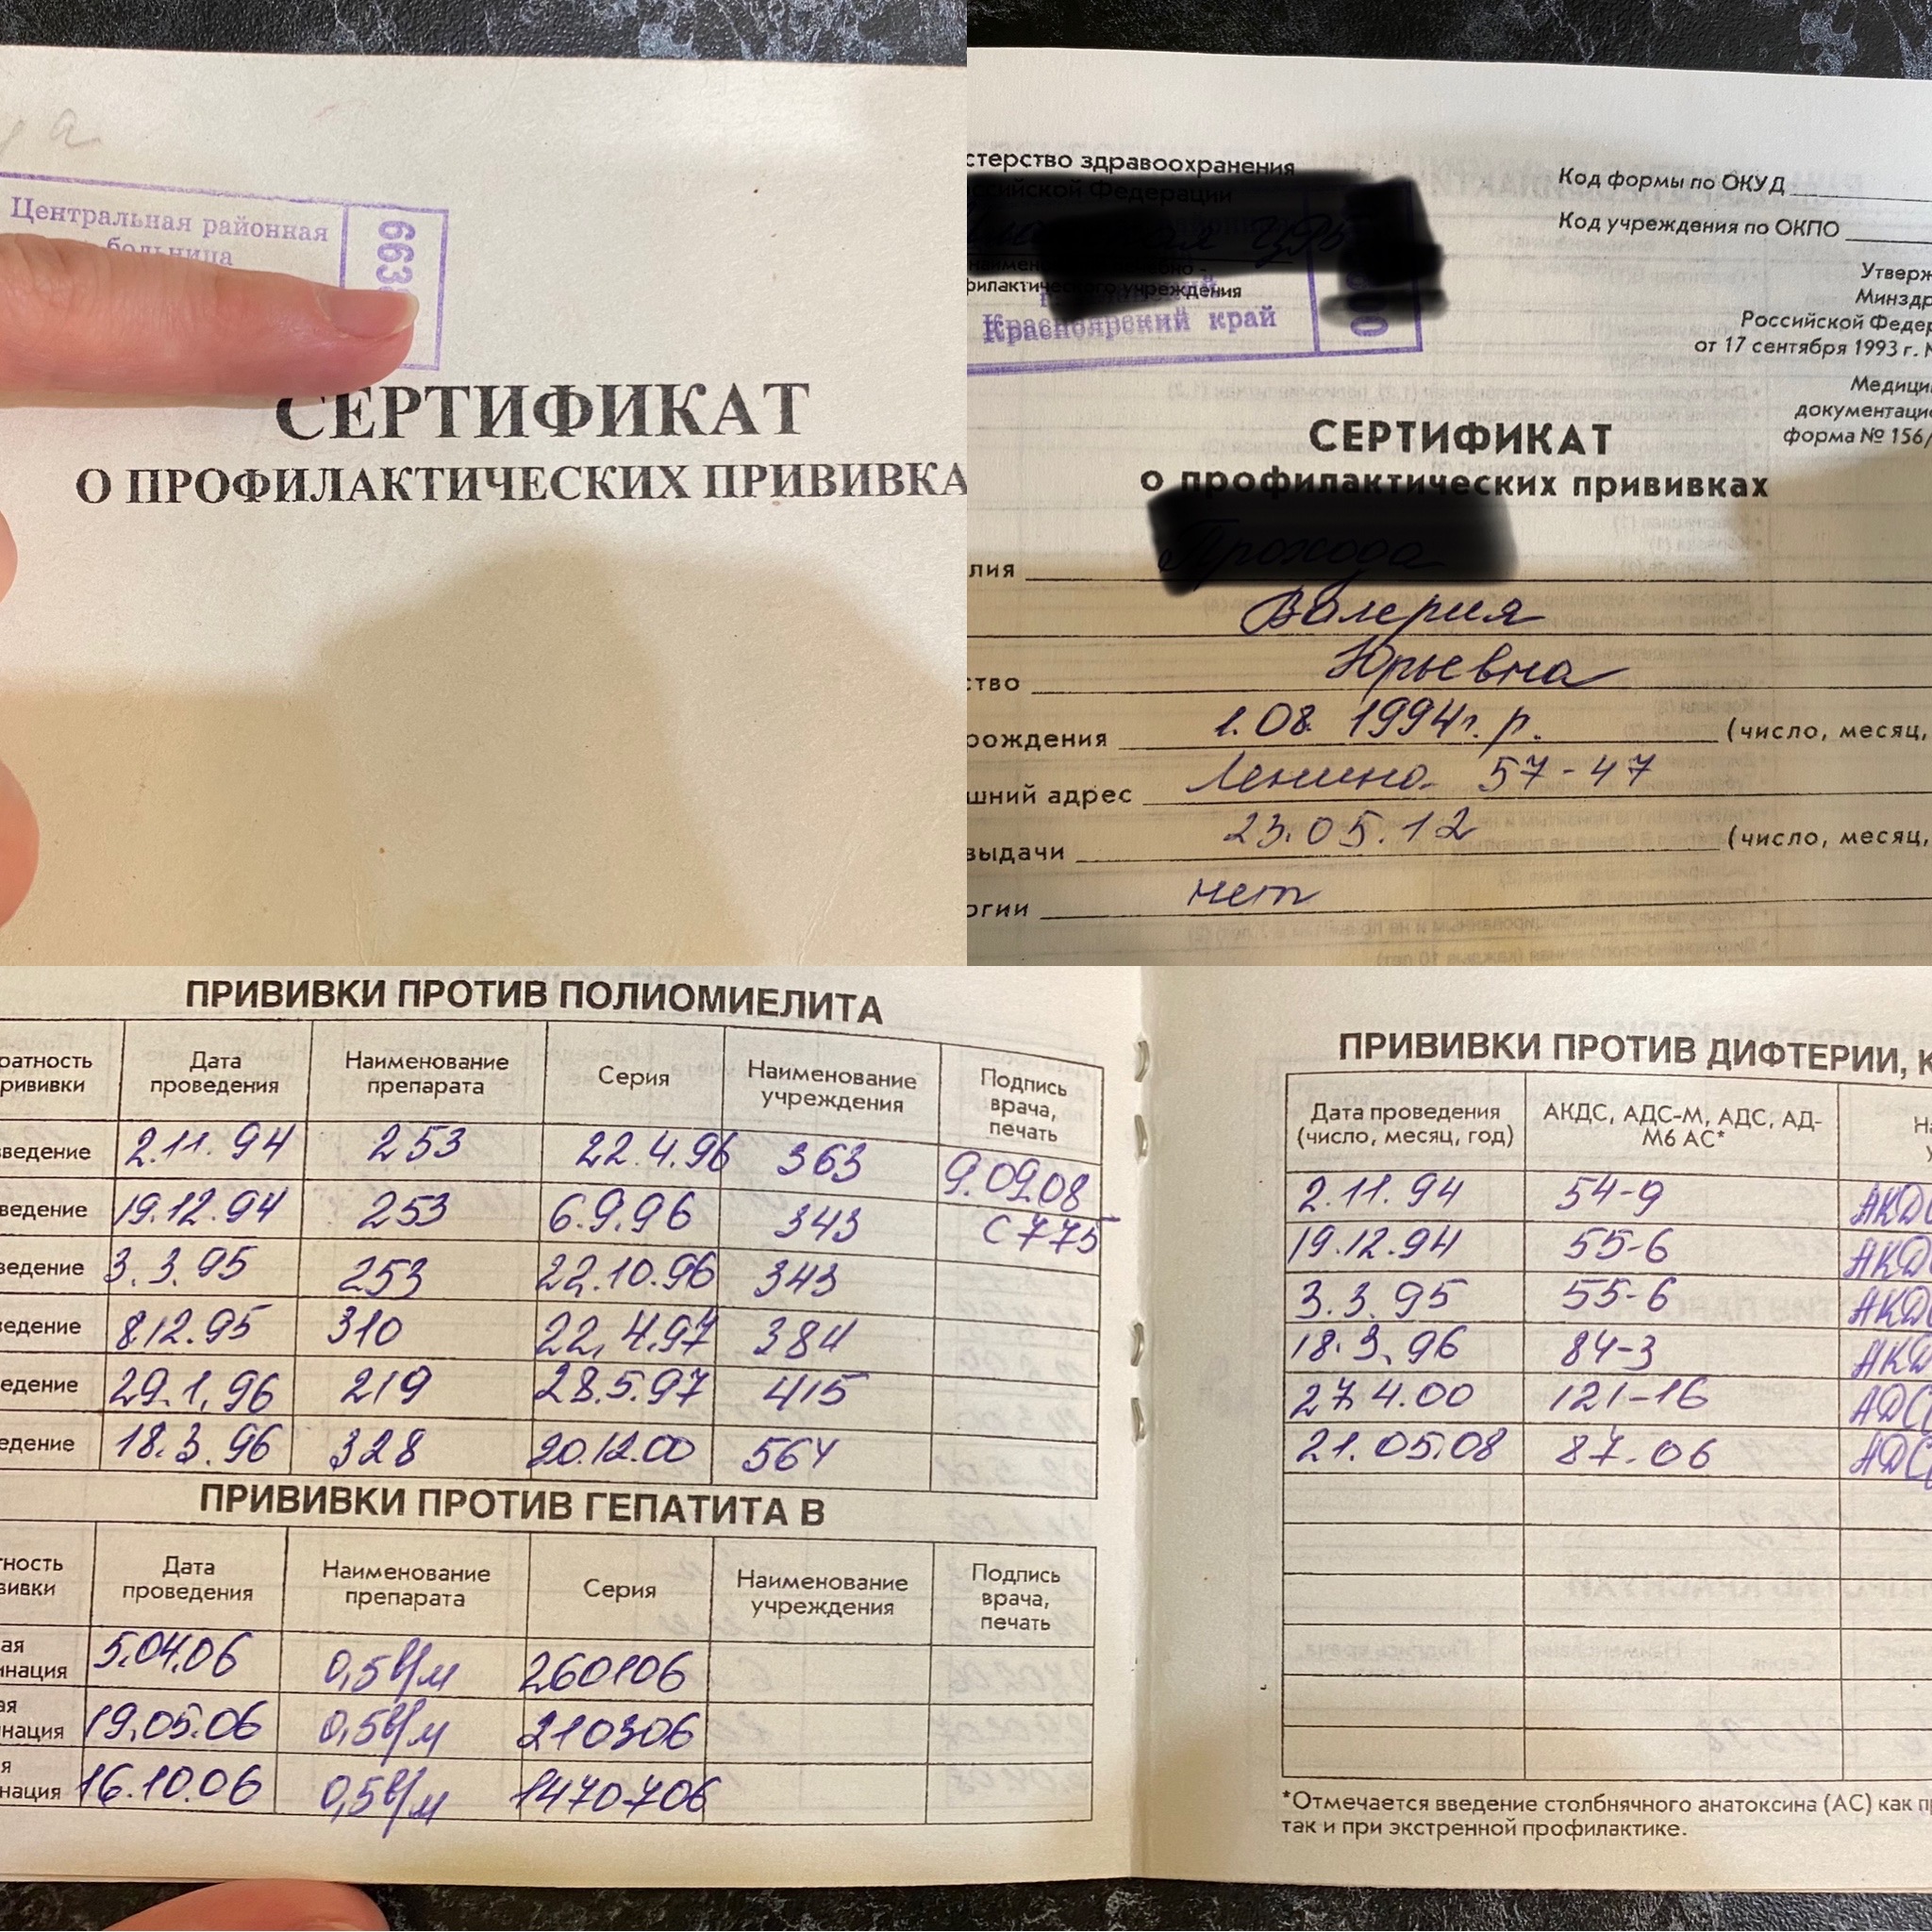 Центральная районная
больница
663
СЕРТИФИКАТ
О ПРОФИЛАКТИЧЕСКИХ ПРИВИВКА
стерство здравоохранения
Код формы по ОКУД
Код учреждения по ОКПО
филактического учреждения
Красноярский край
Утверж
Минздр
Российской Федер
от 17 сентября 1993 г. №
Медици
документацио
форма № 156/
СЕРТИФИКАТ
о профилактических прививках
лия
Валерия
ство Юрьевна
рождения 1.08. 1994г. р. (число, месяц,
шний адрес Ленина 57-47
выдачи 23.05.12 (число, месяц,
огии нет
ПРИВИВКИ ПРОТИВ ПОЛИОМИЕЛИТА
ратность прививки Дата проведения Наименование препарата Серия Наименование учреждения Подпись врача, печать
ведение 2.11.94 253 22.4.96 363 9.09.08
ведение 19.12.94 253 6.9.96 343 С775
ведение 3.3.95 253 22.10.96 343
ведение 8.12.95 310 22.4.97 384
едение 29.1.96 219 28.5.97 415
едение 18.3.96 328 20.12.00 564
ПРИВИВКИ ПРОТИВ ГЕПАТИТА В
Дата проведения Наименование препарата Серия Наименование учреждения Подпись врача, печать
5.04.06 0,5 в/м 260106
19.05.06 0,5 в/м 210306
16.10.06 0,5 в/м 1470706
ПРИВИВКИ ПРОТИВ ДИФТЕРИИ, К
Дата проведения (число, месяц, год) АКДС, АДС-М, АДС, АД-М6 АС*
2.11.94 54-9 АКДС
19.12.94 55-6 АКД
3.3.95 55-6 АКД
18.3.96 84-3 АКД
27.4.00 121-16 АДС
21.05.08 87.06 АДС
*Отмечается введение столбнячного анатоксина (АС) как пр
так и при экстренной профилактике.